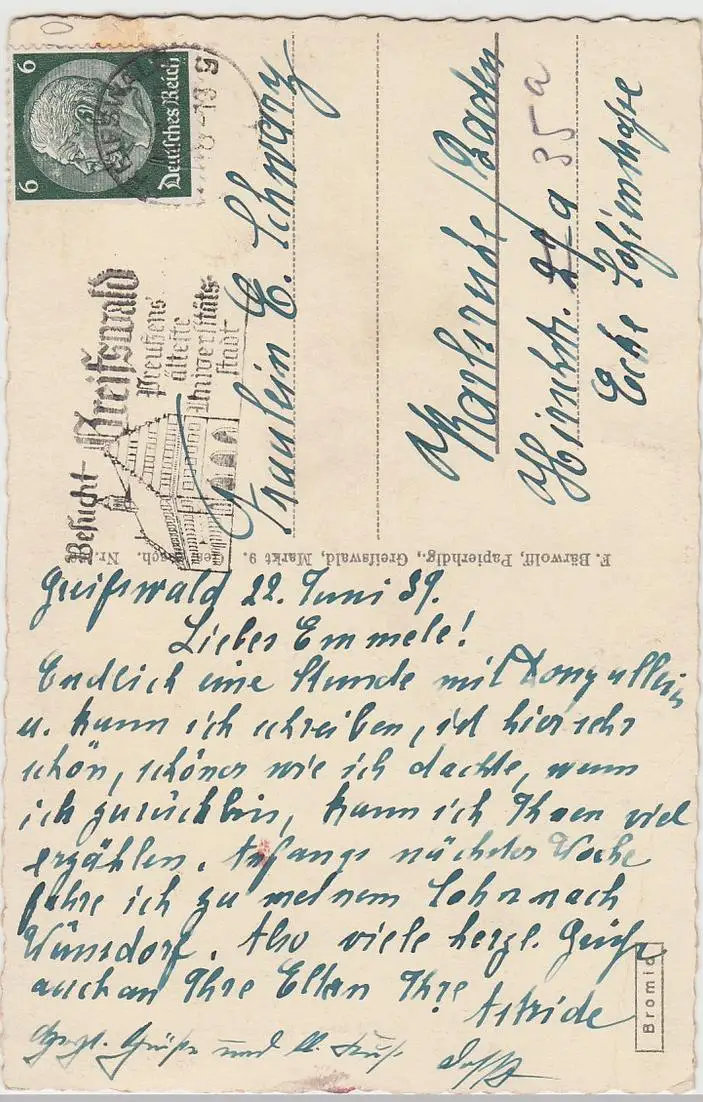 6 6
Deutsches Reich
Besucht Greifswald
Preußens
älteste
Universitäts-
stadt
Fräulein E. Schwarz
Karlsruhe/Baden
Hirschstr. 35a
Ecke Sofienstraße
F. Bärwolff, Papierhdlg., Greifswald, Markt 9. Nr.
Greifswald 22. Juni 39.
Liebes Emmele!
Endlich eine Stunde mit allein
u. kann ich schreiben, ist hier sehr
schön, schöner wie ich dachte, wenn
ich zurückbin, kann ich Ihnen viel
erzählen. Anfangs nächster Woche
fahre ich zu meinem Sohn nach
Wünsdorf. Also viele herzl. Grüße
auch an Ihre Eltern Ihre
Astride
Herzl. Grüße und kl. Kuß
Bromid